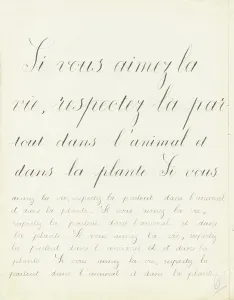 Si vous aimez la
vie, respectez-la par-
tout dans l'animal et
dans la plante Si vous
aimez la vie, respectez-la partout dans l'animal
et dans la plante. Si vous aimez la vie,
respectez-la partout dans l'animal et dans
la plante Si vous aimez la vie, respectez-
la partout dans l'animal et dans la
plante Si vous aimez la vie, respectez-la
partout dans l'animal et dans la plante.